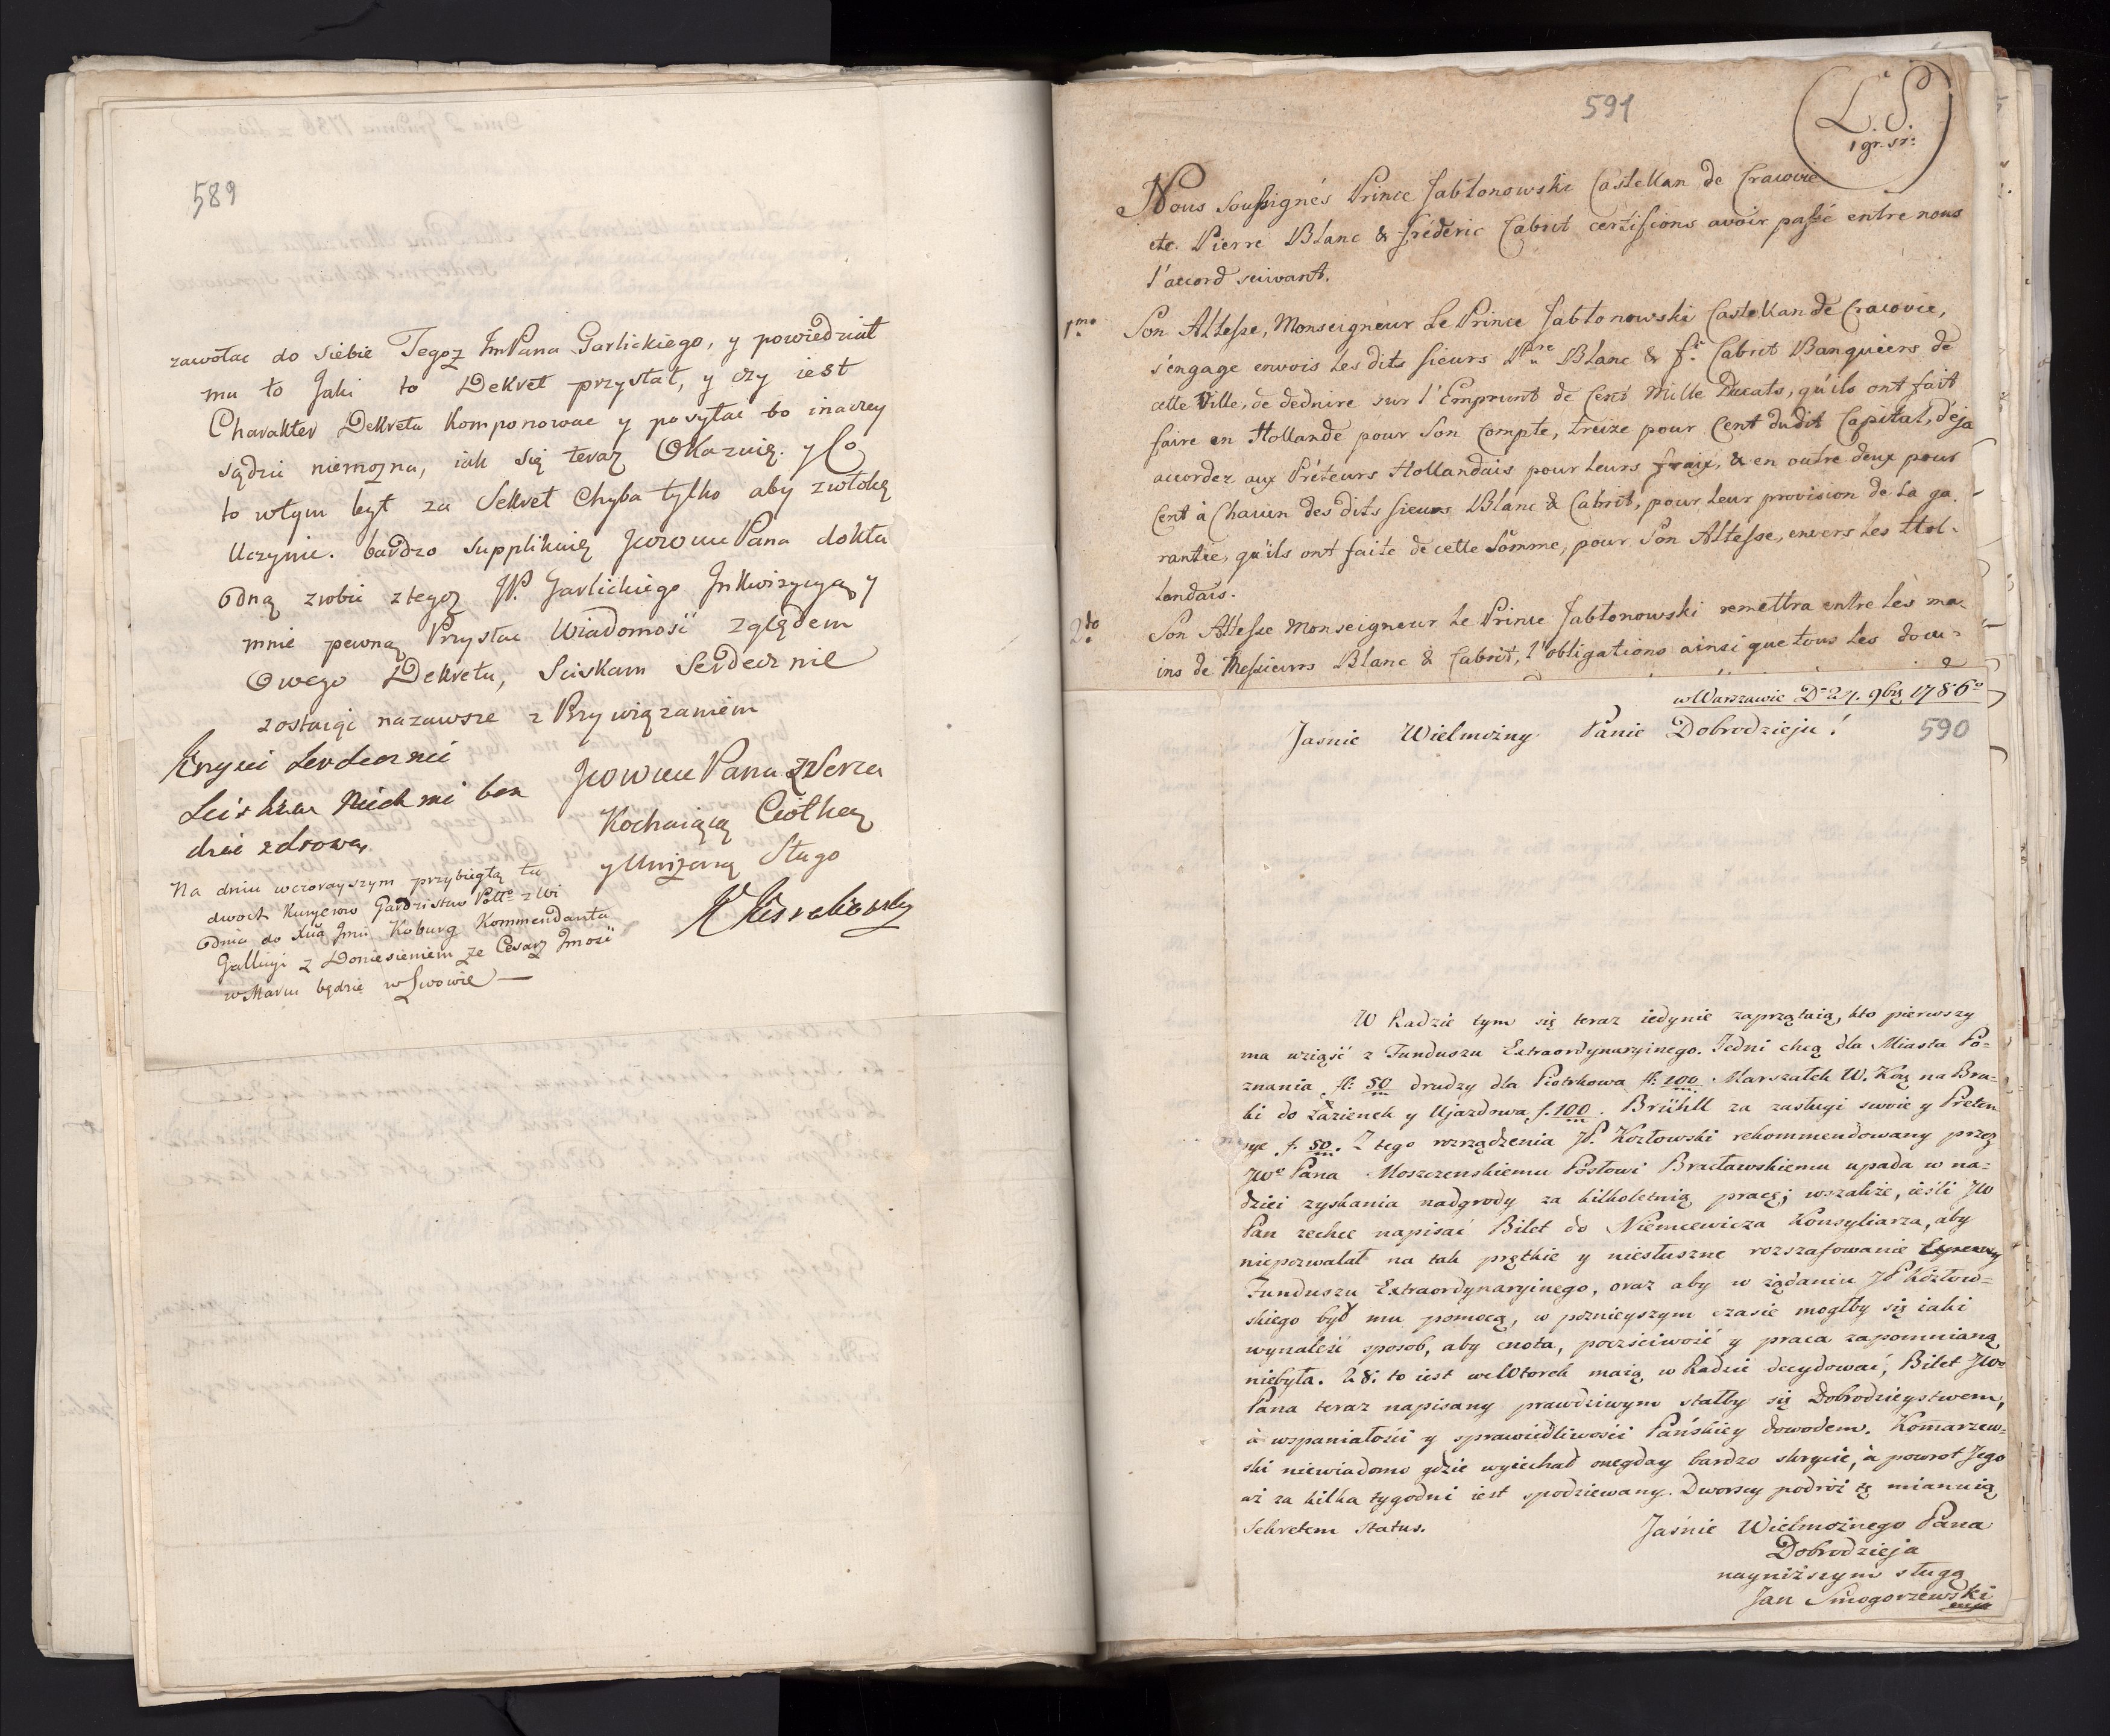 589
zawołac do siebie Tegoz ImPana Garlickiego, y powiedział
mu to Jaki to Dekret przysłał, y czy iest
Charakter Dekretu Komponowac y posyłac bo inaczey
sądzic niemozna, iak się teraz Okazuię. y Co
to wtym był za Sekret Chyba tylko aby zwłokę
Uczynic. bardzo Supplikuię Pana dokła
dną zrobic ztegoz JP. Garlickiego Inkwizycyą y
mnie pewną Przysłac Wiadomość względem
Owego Dekretu, Sciskam Serdecznie
zostaiąc nazawsze z Przywiązaniem
Pana z Serca
Kochaiącą Ciotką
y Unizoną Sługo
Krysie Serdecznie
Sciskam Niech mi ben
dzie zdrowa
Na dniu wczorayszym przybiegło tu
dwoch Kuryerow Gardzistow z Wi
dnia do Koburg Kommendanta
Gallicyi z Doniesieniem ze Cesarz Jmość
w Marcu będzie w Lwowie —
591
L. S.
1 gr. sr:
Nous Soussignés Prince Jabłonowski Castellan de Cracovie
etc. Pierre Blanc & Fréderic Cabrit certifions avoir passé entre nous
l'accord suivant.
1mo Son Altesse, Monseigneur Le Prince Jabłonowski Castellan de Cracovie,
s'engage envois Les dits Sieurs Pre Blanc & Fc Cabrit Banquiers de
cette Ville, de deduire sur l'Emprunt de Cent Mille Ducats, qu'ils ont fait
faire en Hollande pour Son Compte, treize pour Cent dudit Capital, déja
accordez aux Préteurs Hollandais pour Leurs fraix, & en outre deux pour
Cent à Chacun des dits Sieurs Blanc & Cabrit, pour Leur provision de La ga-
rantie, qu'ils ont faite de cette Somme, pour Son Altesse, envers Les Hol-
landais.
2do Son Altesse Monseigneur Le Prince Jabłonowski remettra entre Les ma-
ins de Messieurs Blanc & Cabrit, l'obligations ainsi que tous Les docu-
w Warszawie D. 27. 9bris 1786o
590
Jasnie Wielmożny Panie Dobrodzieju!
W Radzie tym się teraz iedynie zaprzątaią, kto pierwszy
ma wziąść z Funduszu Extraordynaryinego. Jedni chcą dla Miasta Po-
znania fl: 50 drudzy dla Piotrkowa fl: 100 Marszałek W. Kor. na Bru-
ki do Łazienek y Ujazdowa f. 100. Brühll za zasługi swoie y Preten
sye f. 50. Z tego rozrządzenia JP. Kozłowski rekommendowany przez
JWo Pana Moszczenskiemu Posłowi Bracławskiemu upada w na-
dziei zyskania nadgrody za kilkoletnią pracę; wszakże, ieśli JW
Pan zechce napisać Bilet do Niemcewicza Konsyliarza, aby
niepozwalał na tak prętkie y niesłuszne rozszafowanie
Funduszu Extraordynaryinego, oraz aby w żądaniu JP Kozłow-
skiego był mu pomocą, w poznieyszym czasie mogłby się iaki
wynaleźć sposob, aby cnota, poczściwość y praca zapomnianą
niebyła. 28. to iest weWtorek maią w Radzie decydować, Bilet JWo
Pana teraz napisany prawdziwym stałby się Dobrodzieystwem,
à wspaniałości y sprawiedliwości Pańskiey dowodem. Komarzew-
ski niewiadomo gdzie wyiechał onegday bardzo skrycie, à powrot Jego
aż za kilka tygodni iest spodziewany. Dworscy podróż tę mianuią
Sekretem Status.
Jaśnie Wielmożnego Pana
Dobrodzieja
nayniższym sługą
Jan Smogorzewski